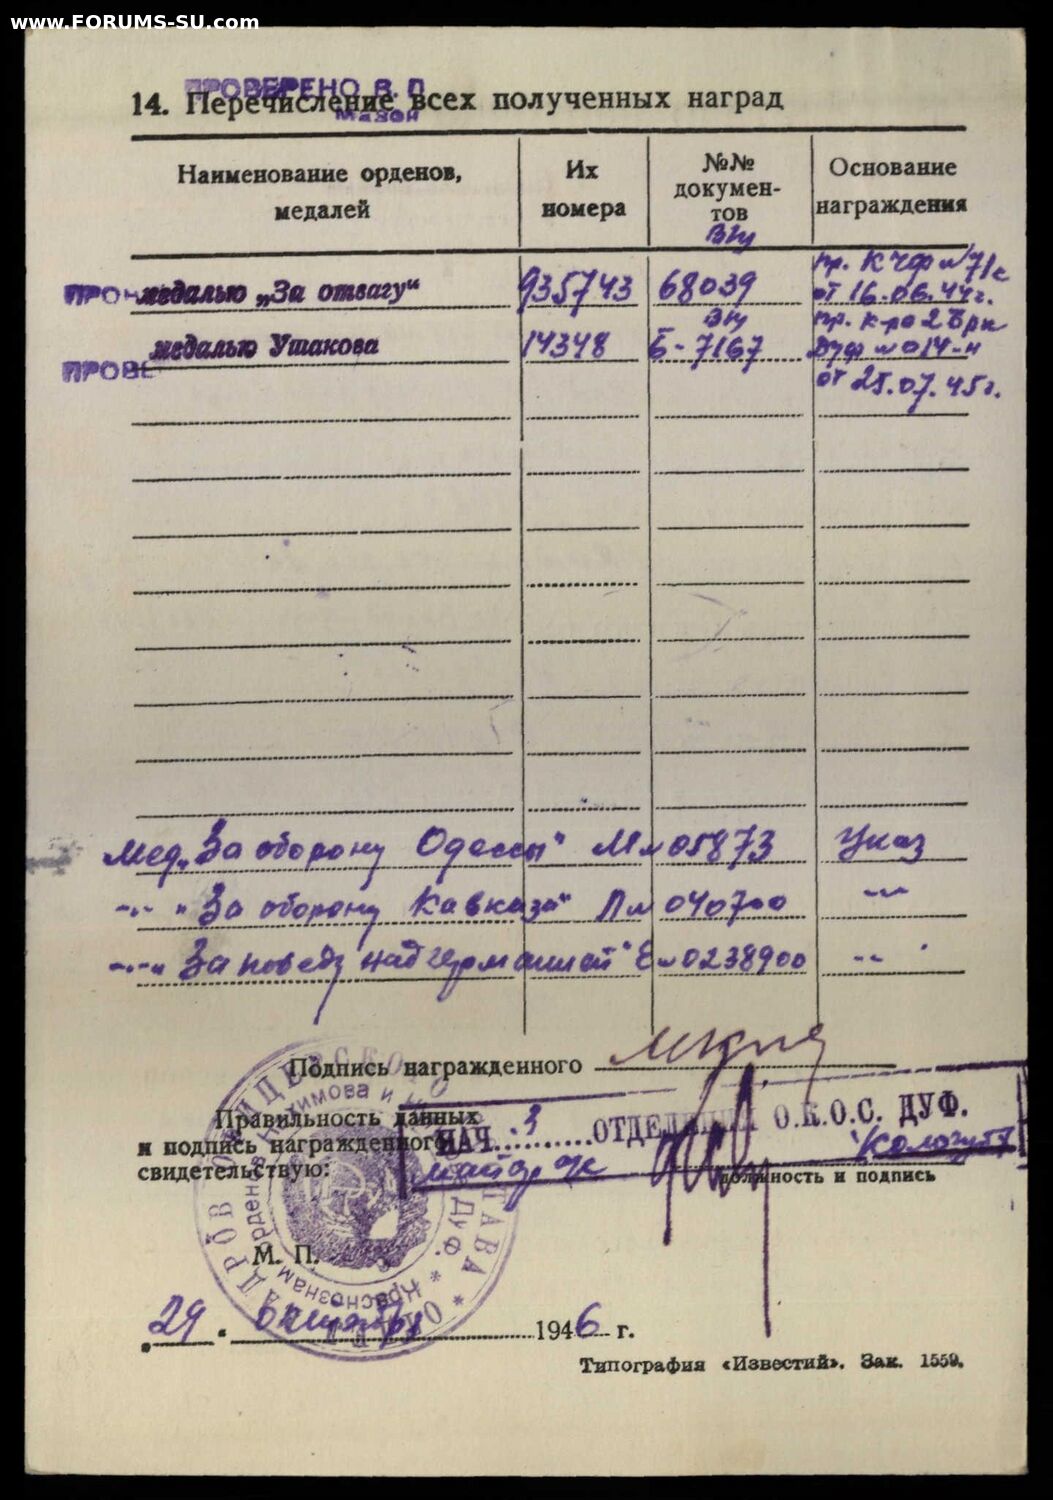 www.FORUMS-SU.com
ПРОВЕРЕНО В. П
14. Перечисление всех полученных наград
Наименование орденов, медалей
Их номера
№№ документов
Основание награждения
медалью „За отвагу“ 935743 68039 пр. КЧФ № 71с
от 16.06.44г.
медалью Ушакова 14348 Б-7167 пр. к-ра 2 Брк
ДУФ № 014-н
от 25.07.45г.
ПРОВЕ
Мед. „За оборону Одессы“ М № 05873 Указ
-"- „За оборону Кавказа“ Л № 040700 -"-
-"- „За победу над германией“ Е № 0238900 -"-
Подпись награжденного
Правильность данных
и подпись награжденного
свидетельствую:
НАЧ. 3 ОТДЕЛЕНИЯ О.К.О.С. ДУФ.
майор
должность и подпись
М. П.
29. октября 1946 г.
Типография «Известий». Зак. 1559.